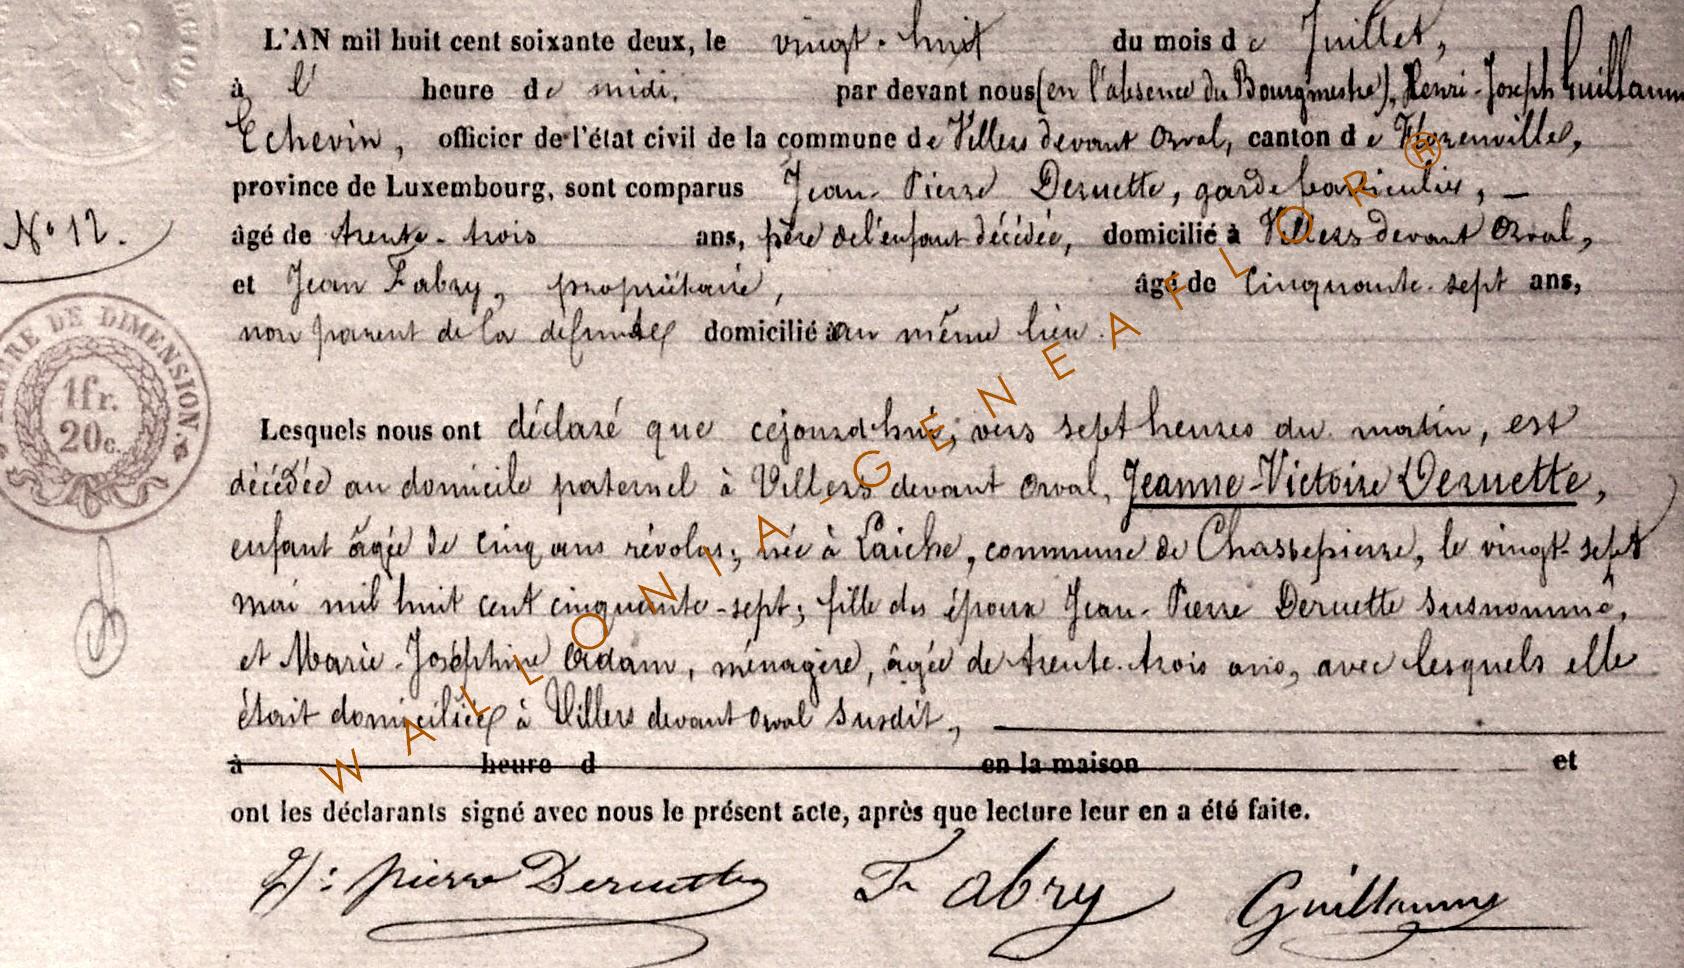 L'AN mil huit cent soixante deux, le vingt-huit du mois de Juillet,
à l' heure de midi, par devant nous (en l'absence du Bourgmestre), Henri-Joseph Guillaume
Echevin, officier de l'état civil de la commune de Villers devant Orval, canton de Florenville,
province de Luxembourg, sont comparus Jean-Pierre Deruette, garde particulier, —
N° 12.
âgé de trente-trois ans, père de l'enfant décédée, domicilié à Villers devant Orval,
et Jean Fabry, propriétaire, âgé de cinquante-sept ans,
non parent de la défunte domicilié au même lieu.
TIMBRE DE DIMENSION.
1fr.
20c.
Lesquels nous ont déclaré que cejourd'hui, vers sept heures du matin, est
décédée au domicile paternel à Villers devant Orval, Jeanne-Victoire Deruette,
enfant âgée de cinq ans révolus, née à Laiche, commune de Chassepierre, le vingt-sept
mai mil huit cent cinquante-sept; fille des époux Jean-Pierre Deruette susnommé,
et Marie-Joséphine Adam, ménagère, âgée de trente-trois ans, avec lesquels elle
était domiciliée à Villers devant Orval susdit,
à heure d en la maison et
ont les déclarants signé avec nous le présent acte, après que lecture leur en a été faite.
J: pierre Deruette Fabry Guillaume
WALLONIA-GENEAFLOR®